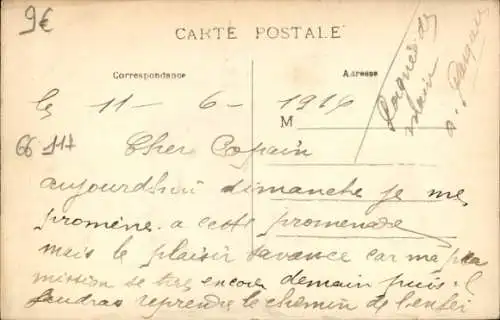 9€
CARTE POSTALE
Correspondance
Adresse
le 11 - 6 - 1916
M
66 117
Cher Copain
aujourdhui dimanche je me
promène. a cette promenade
mais le plaisir savance car ma
mission se tres encore demain puis il
faudras reprendre le chemin de l'enfer